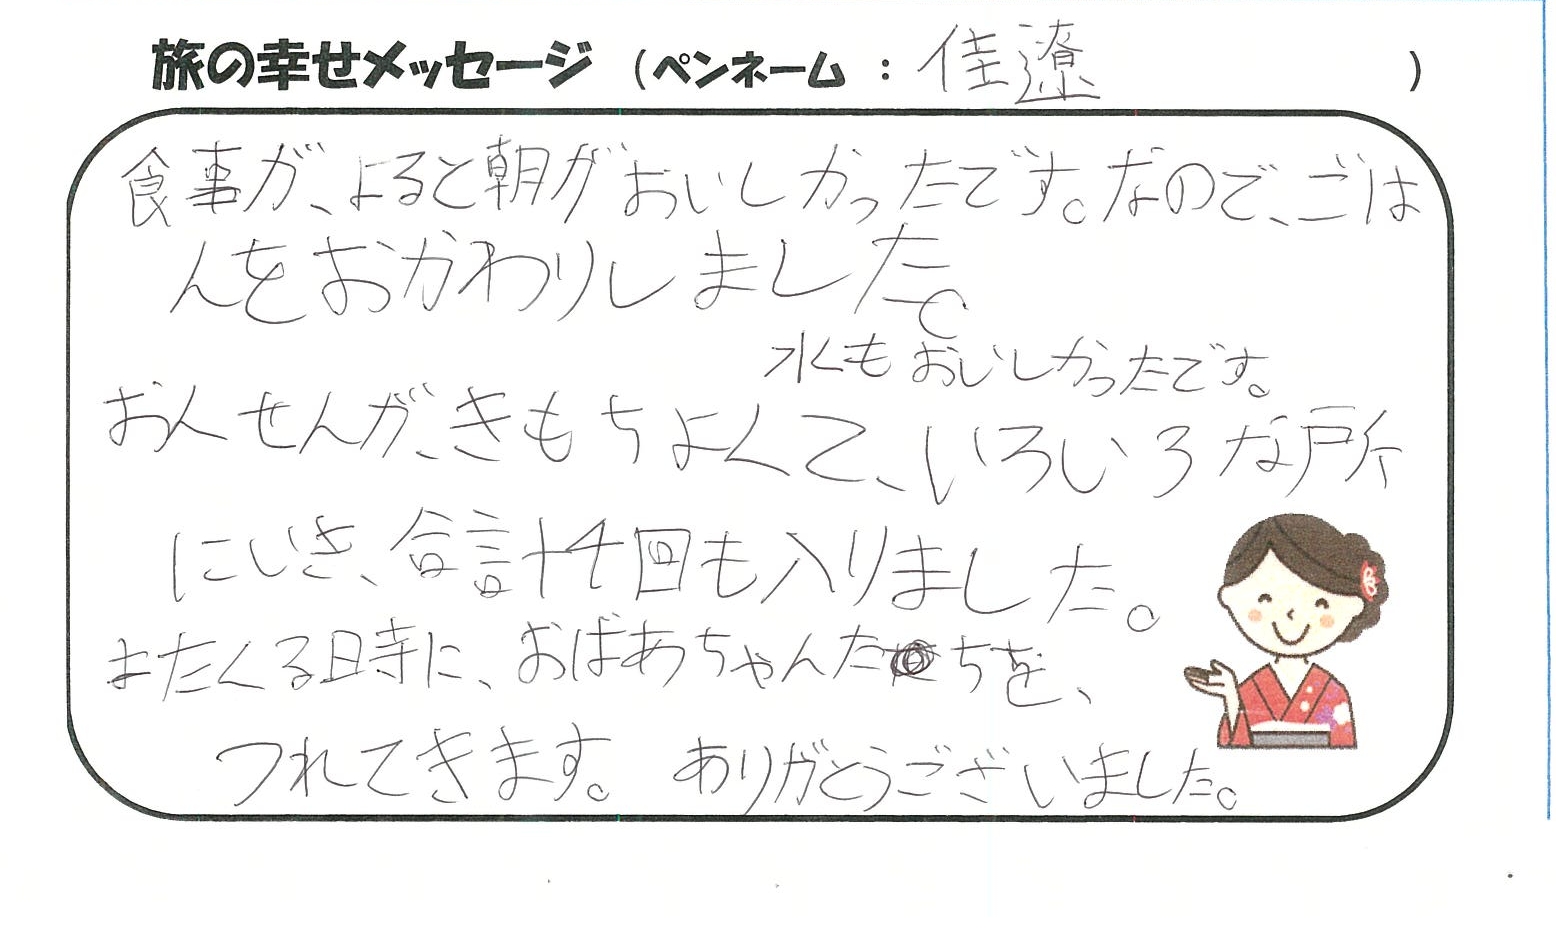 旅の幸せメッセージ (ペンネーム : 佳遼 )
食事が、よると朝がおいしかったです。なので、ごは
んをおかわりしました。
水もおいしかったです。
おんせんが、きもちよくて、いろいろな所
にいき、合計4回も入りました。
またくる時に、おばあちゃんたちを、
つれてきます。 ありがとうございました。